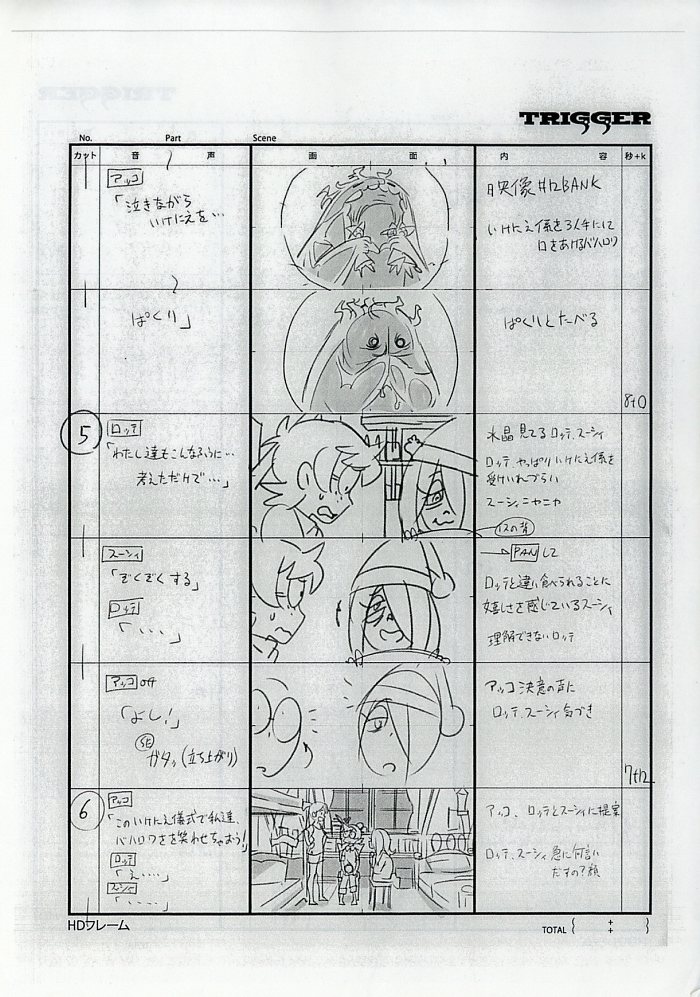 TRIGGER
No.
Part
Scene
カット
音 声
画 面
内 容
秒+k
アッコ
「泣きながら
いけにえを…
映像 #12BANK
いけにえ係を3人手にして
口をあけるバハロワ
ぱくり」
ぱくりとたべる
8+0
5
ロッテ
「わたし達もこんなふうに…
考えただけで…」
水晶見てるロッテ、スーシィ
ロッテ、やっぱりいけにえ係を
受けいれづらい
スーシィニヤニヤ
スーシィ
「ぞくぞくする」
ロッテ
「、、、」
PANして
ロッテと違い食べられることに
嬉しさを感じているスーシィ
理解できないロッテ
アッコ off
「よし!」
SE
ガタッ(立ち上がり)
アッコ決意の声に
ロッテ、スーシィ気づき
7+12
6
アッコ
「このいけにえ儀式で私達、
バハロワを笑わせちゃおう!」
ロッテ
「え、、、」
スーシィ
「、、、、」
アッコ、ロッテとスーシィに提案
ロッテ、スーシィ急に何言い
だすの?顔
HDフレーム
TOTAL { + + }